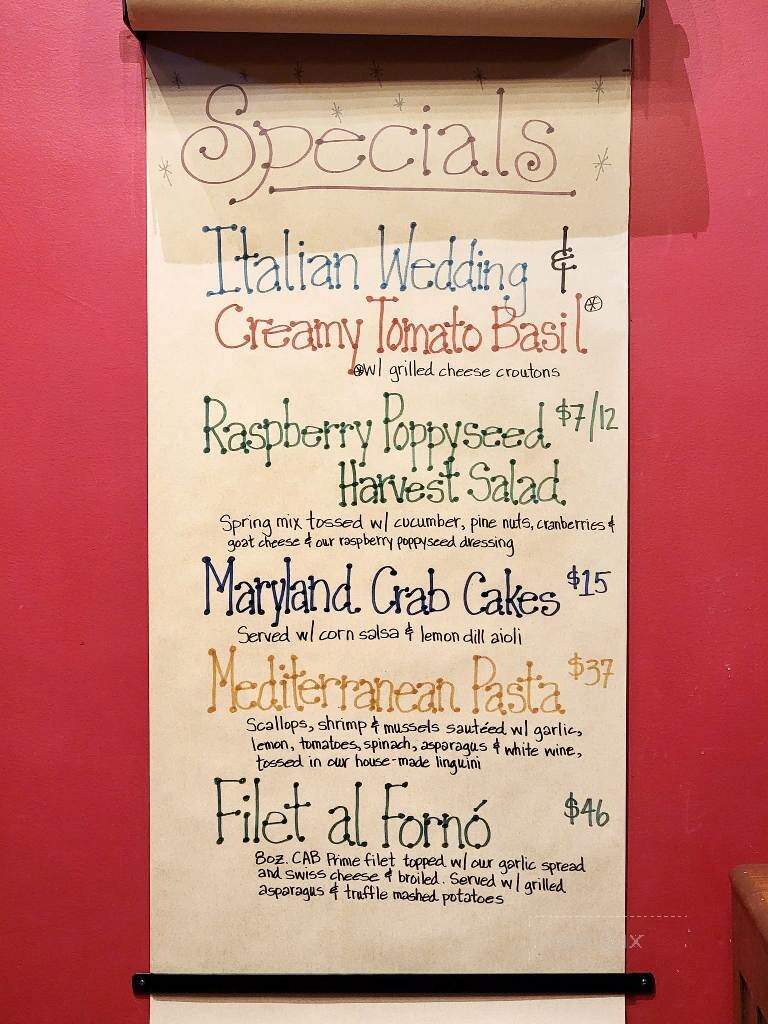 Specials
Italian Wedding &
Creamy Tomato Basil⊛
⊛w/ grilled cheese croutons
Raspberry Poppyseed $7/12
Harvest Salad
Spring mix tossed w/ cucumber, pine nuts, cranberries &
goat cheese & our raspberry poppyseed dressing
Maryland Crab Cakes $15
Served w/ corn salsa & lemon dill aioli
Mediterranean Pasta $37
Scallops, shrimp & mussels sautéed w/ garlic,
lemon, tomatoes, spinach, asparagus & white wine,
tossed in our house-made linguini
Filet al Fornó $46
8oz. CAB Prime filet topped w/ our garlic spread
and swiss cheese & broiled. Served w/ grilled
asparagus & truffle mashed potatoes